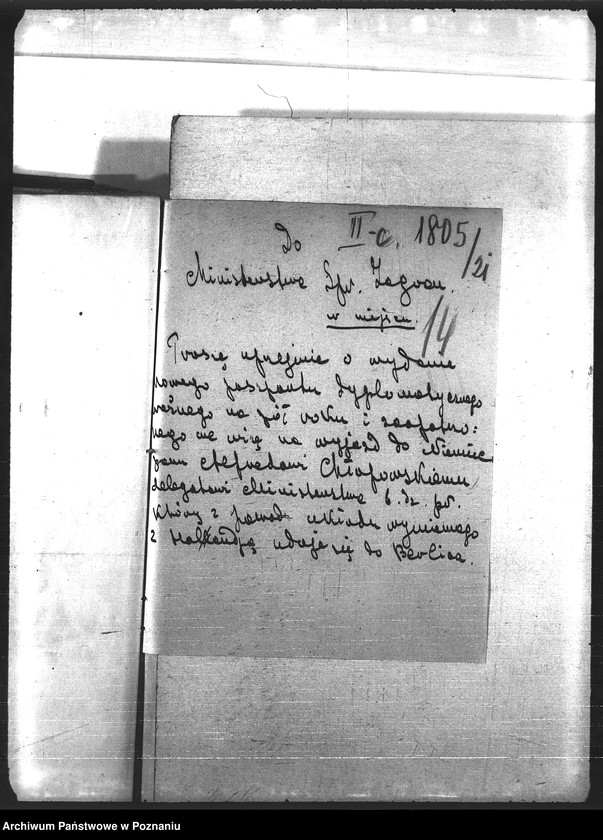 II-c. 1805/21
Do
Ministerstwa Spr. Zagran.
w miejscu.
14
Proszę uprzejmie o wydanie
nowego paszportu dyplomatycznego
ważnego na pół roku i zaopatrzo:
nego we wizę na wyjazd do Niemiec
Panu Alfredowi Chłapowskiemu
delegatowi Ministerstwa b. dz. pr.
który z powodu układu wymiennego
z Hollandją udaje się do Berlina.
Archiwum Państwowe w Poznaniu